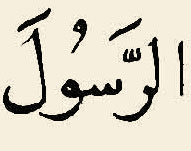 الرَّسُولَ